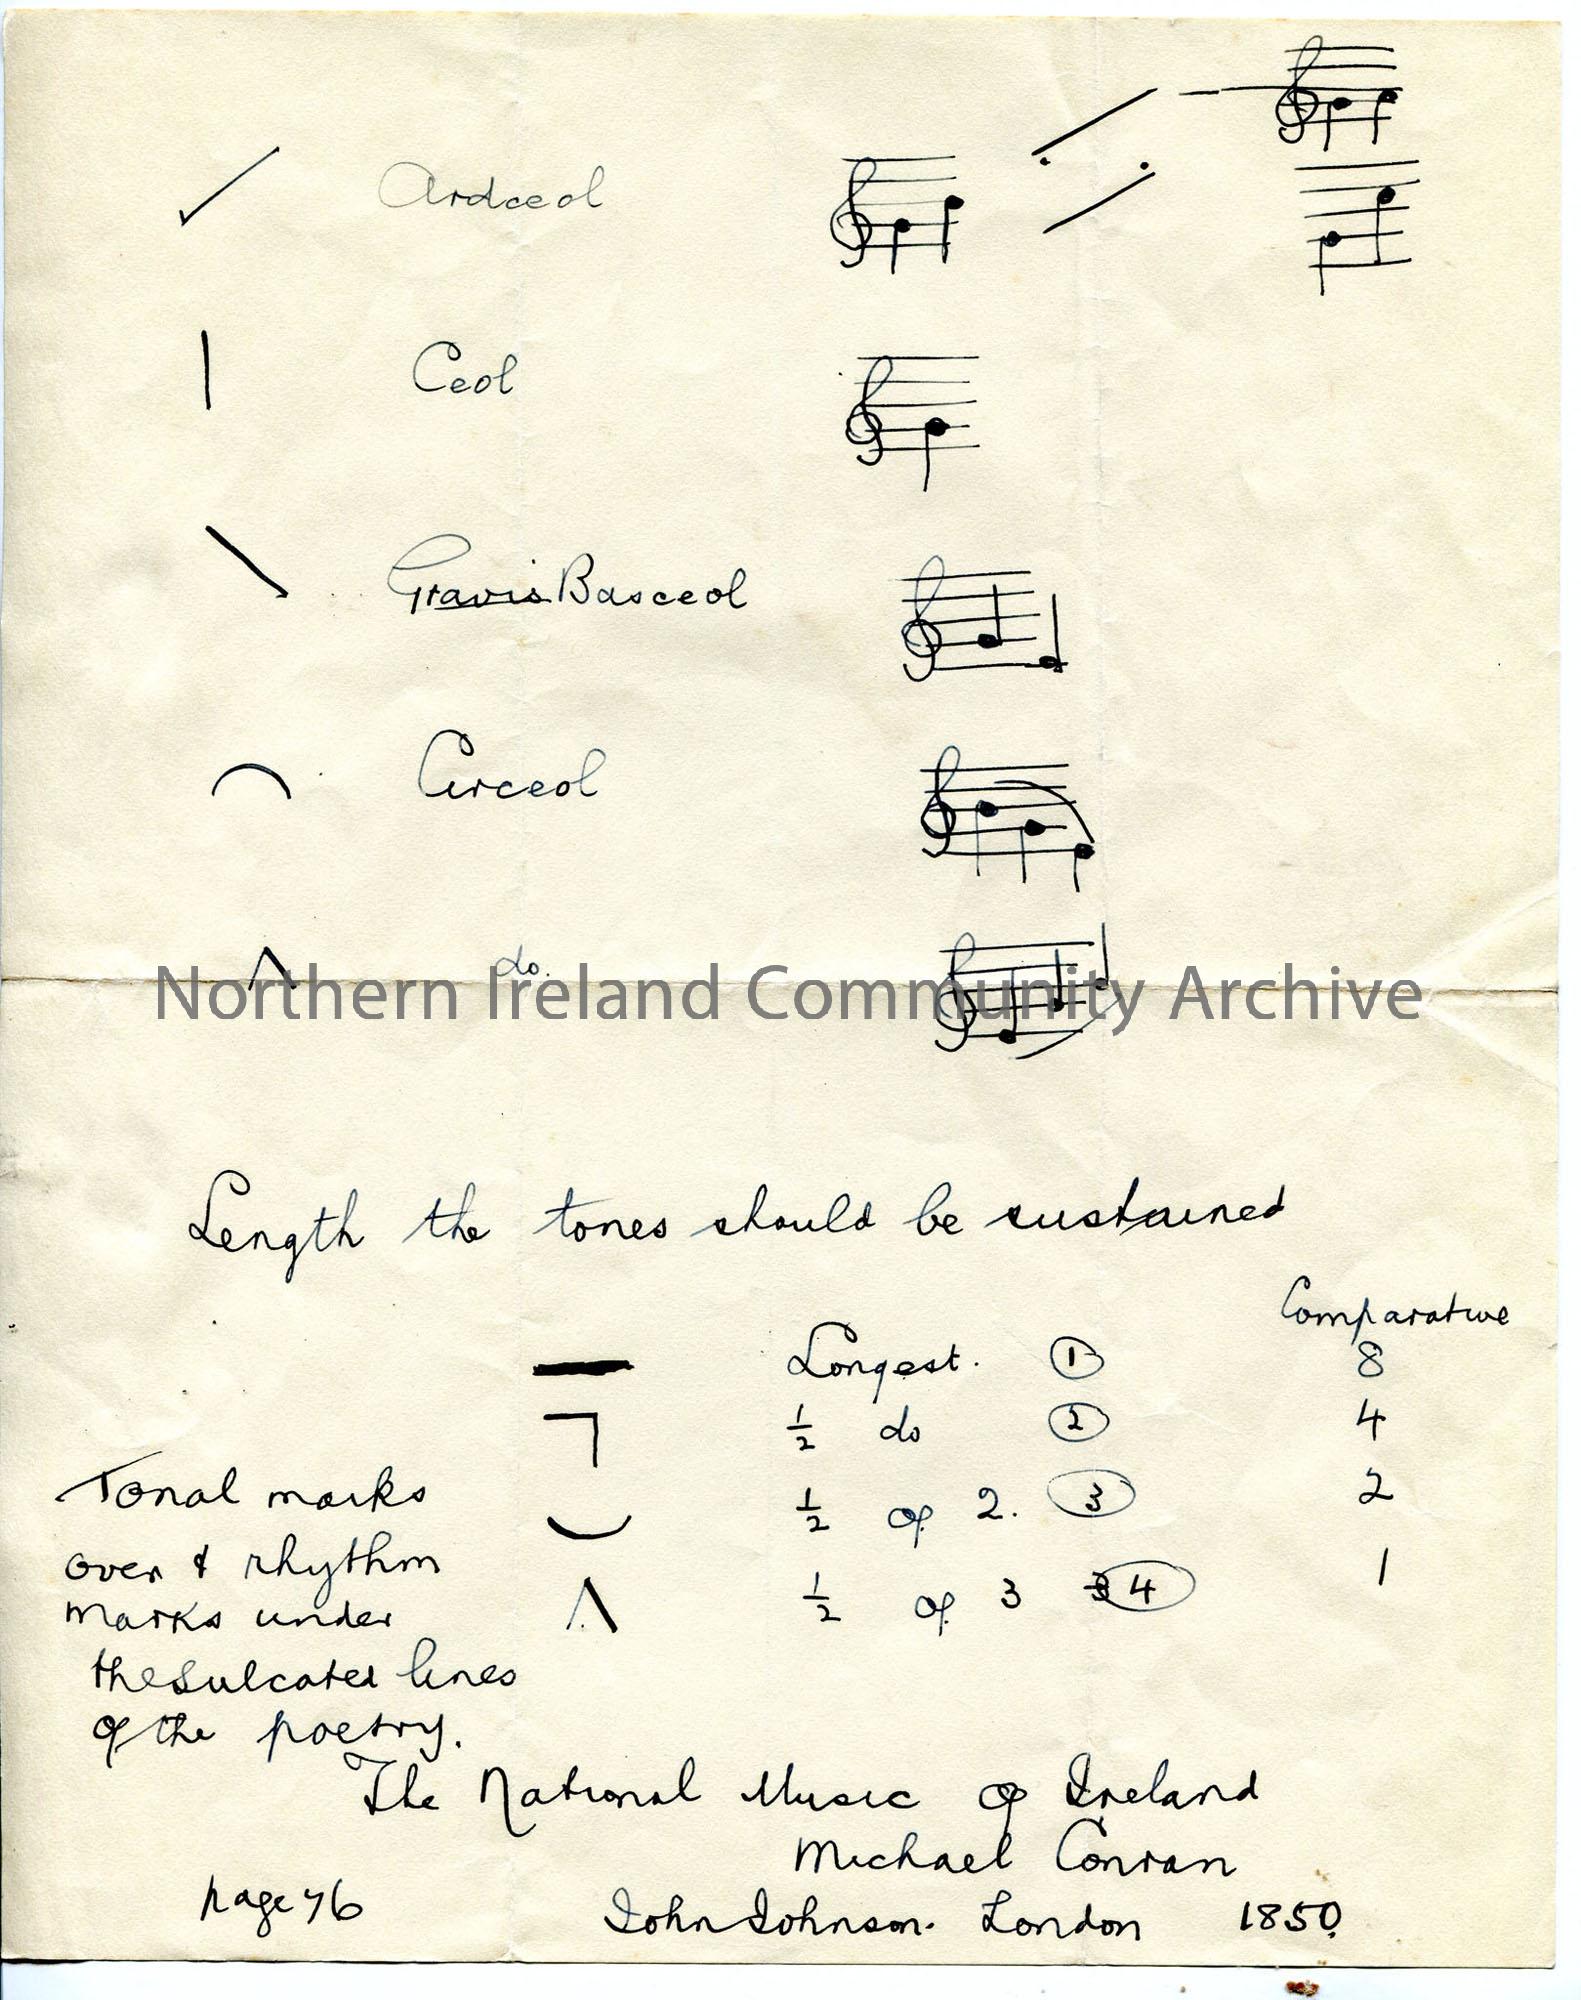 Ardceol
Ceol
Gravis Basceol
Circeol
do.
Northern Ireland Community Archive
Length the tones should be sustained
Comparative
Longest. 1 8
1/2 do 2 4
1/2 of 2. 3 2
1/2 of 3 3 4 1
Tonal marks
over & rhythm
marks under
the sulcated lines
of the poetry.
The National Music of Ireland
Michael Conran
page 76 John Johnson. London 1850.